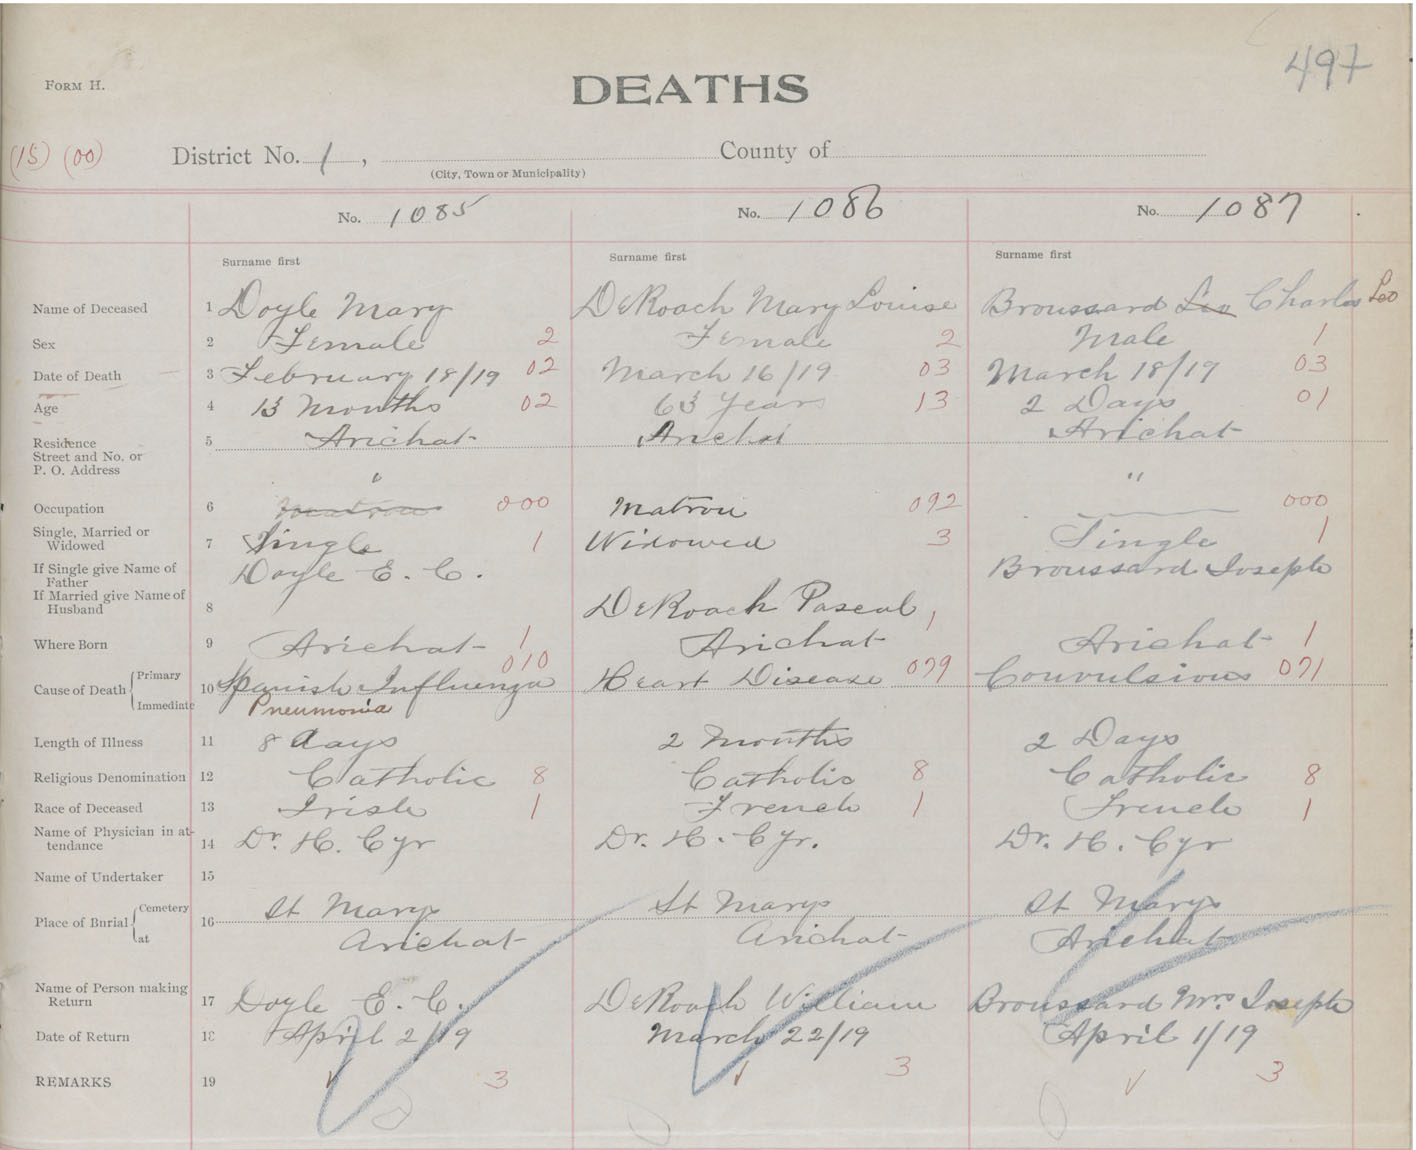 497
FORM H.
DEATHS
(15) (00)
District No. 1, County of
(City, Town or Municipality)
No. 1085 No. 1086 No. 1087
Surname first Surname first Surname first
Name of Deceased 1 Doyle Mary DeRoach Mary Louise Broussard Leo Charles Leo
Sex 2 Female 2 Female 2 Male 1
Date of Death 3 February 18/19 02 March 16/19 03 March 18/19 03
Age 4 13 Months 02 63 Years 13 2 Days 01
Residence 5 Arichat Arichat Arichat
Street and No. or
P. O. Address " "
Occupation 6 Matron 000 Matron 092 000
Single, Married or
Widowed 7 Single 1 Widowed 3 Single 1
If Single give Name of
Father Doyle E. C. Broussard Joseph
If Married give Name of
Husband 8 DeRoach Pascal
Where Born 9 Arichat 1 Arichat 1 Arichat 1
Cause of Death Primary 10 Spanish Influenza 010 Heart Disease 079 Convulsions 071
Immediate Pneumonia
Length of Illness 11 8 days 2 Months 2 Days
Religious Denomination 12 Catholic 8 Catholic 8 Catholic 8
Race of Deceased 13 Irish 1 French 1 French 1
Name of Physician in at-
tendance 14 Dr. H. Cyr Dr. H. Cyr. Dr. H. Cyr
Name of Undertaker 15
Place of Burial Cemetery 16 St Marys St Marys St Marys
at Arichat Arichat Arichat
Name of Person making
Return 17 Doyle E. C. DeRoach William Broussard Mrs Joseph
Date of Return 18 April 2/19 March 22/19 April 1/19
REMARKS 19 3 3 3